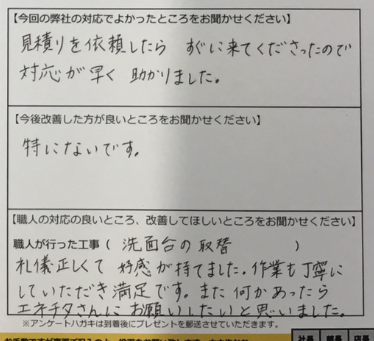 【今回の弊社の対応でよかったところをお聞かせください】
見積りを依頼したら すぐに来てくださったので
対応が早く 助かりました。
【今後改善した方が良いところをお聞かせください】
特にないです。
【職人の対応の良いところ、改善してほしいところをお聞かせください】
職人が行った工事（ 洗面台の取替 ）
礼儀正しくて 好感が持てました。作業も丁寧に
していただき満足です。また何かあったら
エネチタさんにお願いしたいと思いました。
※アンケートハガキは到着後にプレゼントを郵送させていただきます。
社長 部長 店長